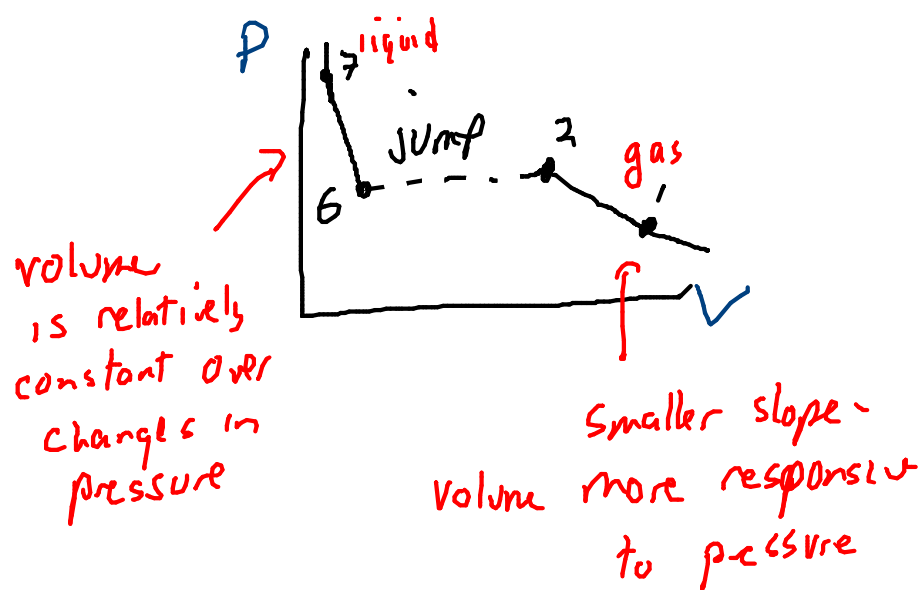 P
7 liquid
jump
2
gas
6
1
V
volume
is relatively
constant over
changes in
pressure
smaller slope-
volume more responsive
to pressure